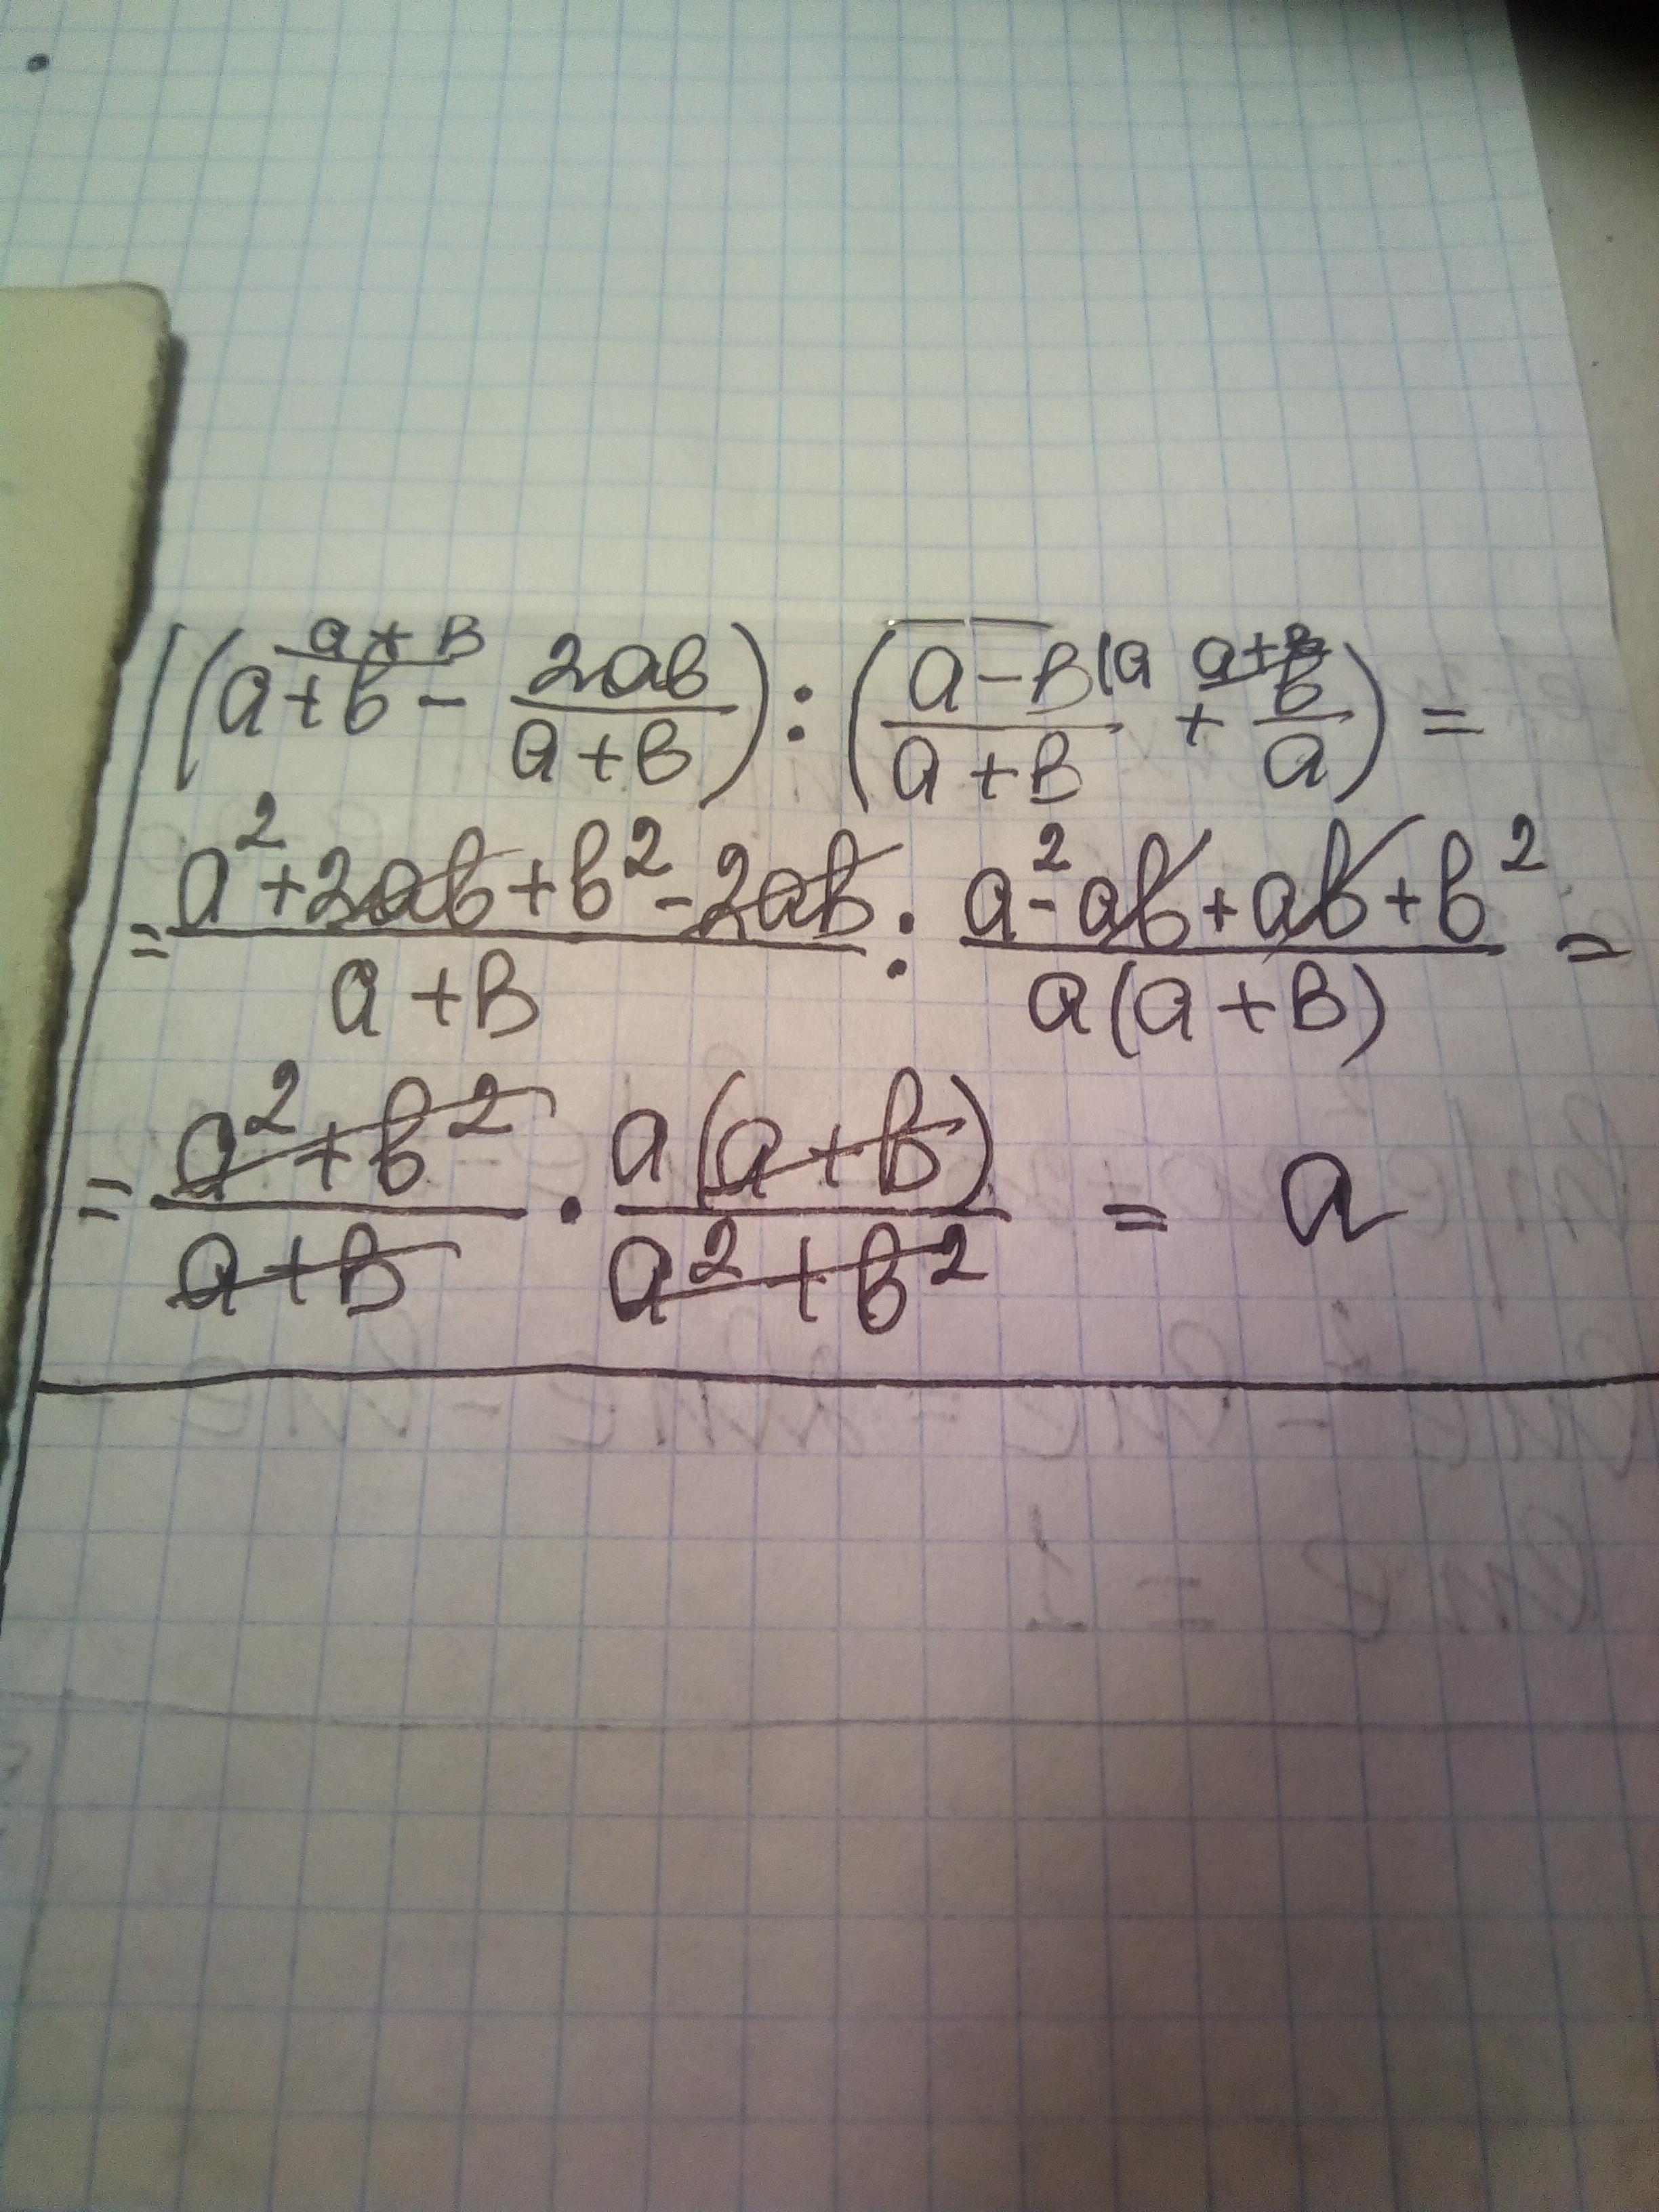 (a+b^{(a+b} - \frac{2ab}{a+b}) : (\frac{a-b^{(a}}{a+b} + \frac{b^{(a+b}}{a}) =
= \frac{a^2+2ab+b^2-2ab}{a+b} : \frac{a^2-ab+ab+b^2}{a(a+b)} =
= \frac{a^2+b^2}{a+b} · \frac{a(a+b)}{a^2+b^2} = a